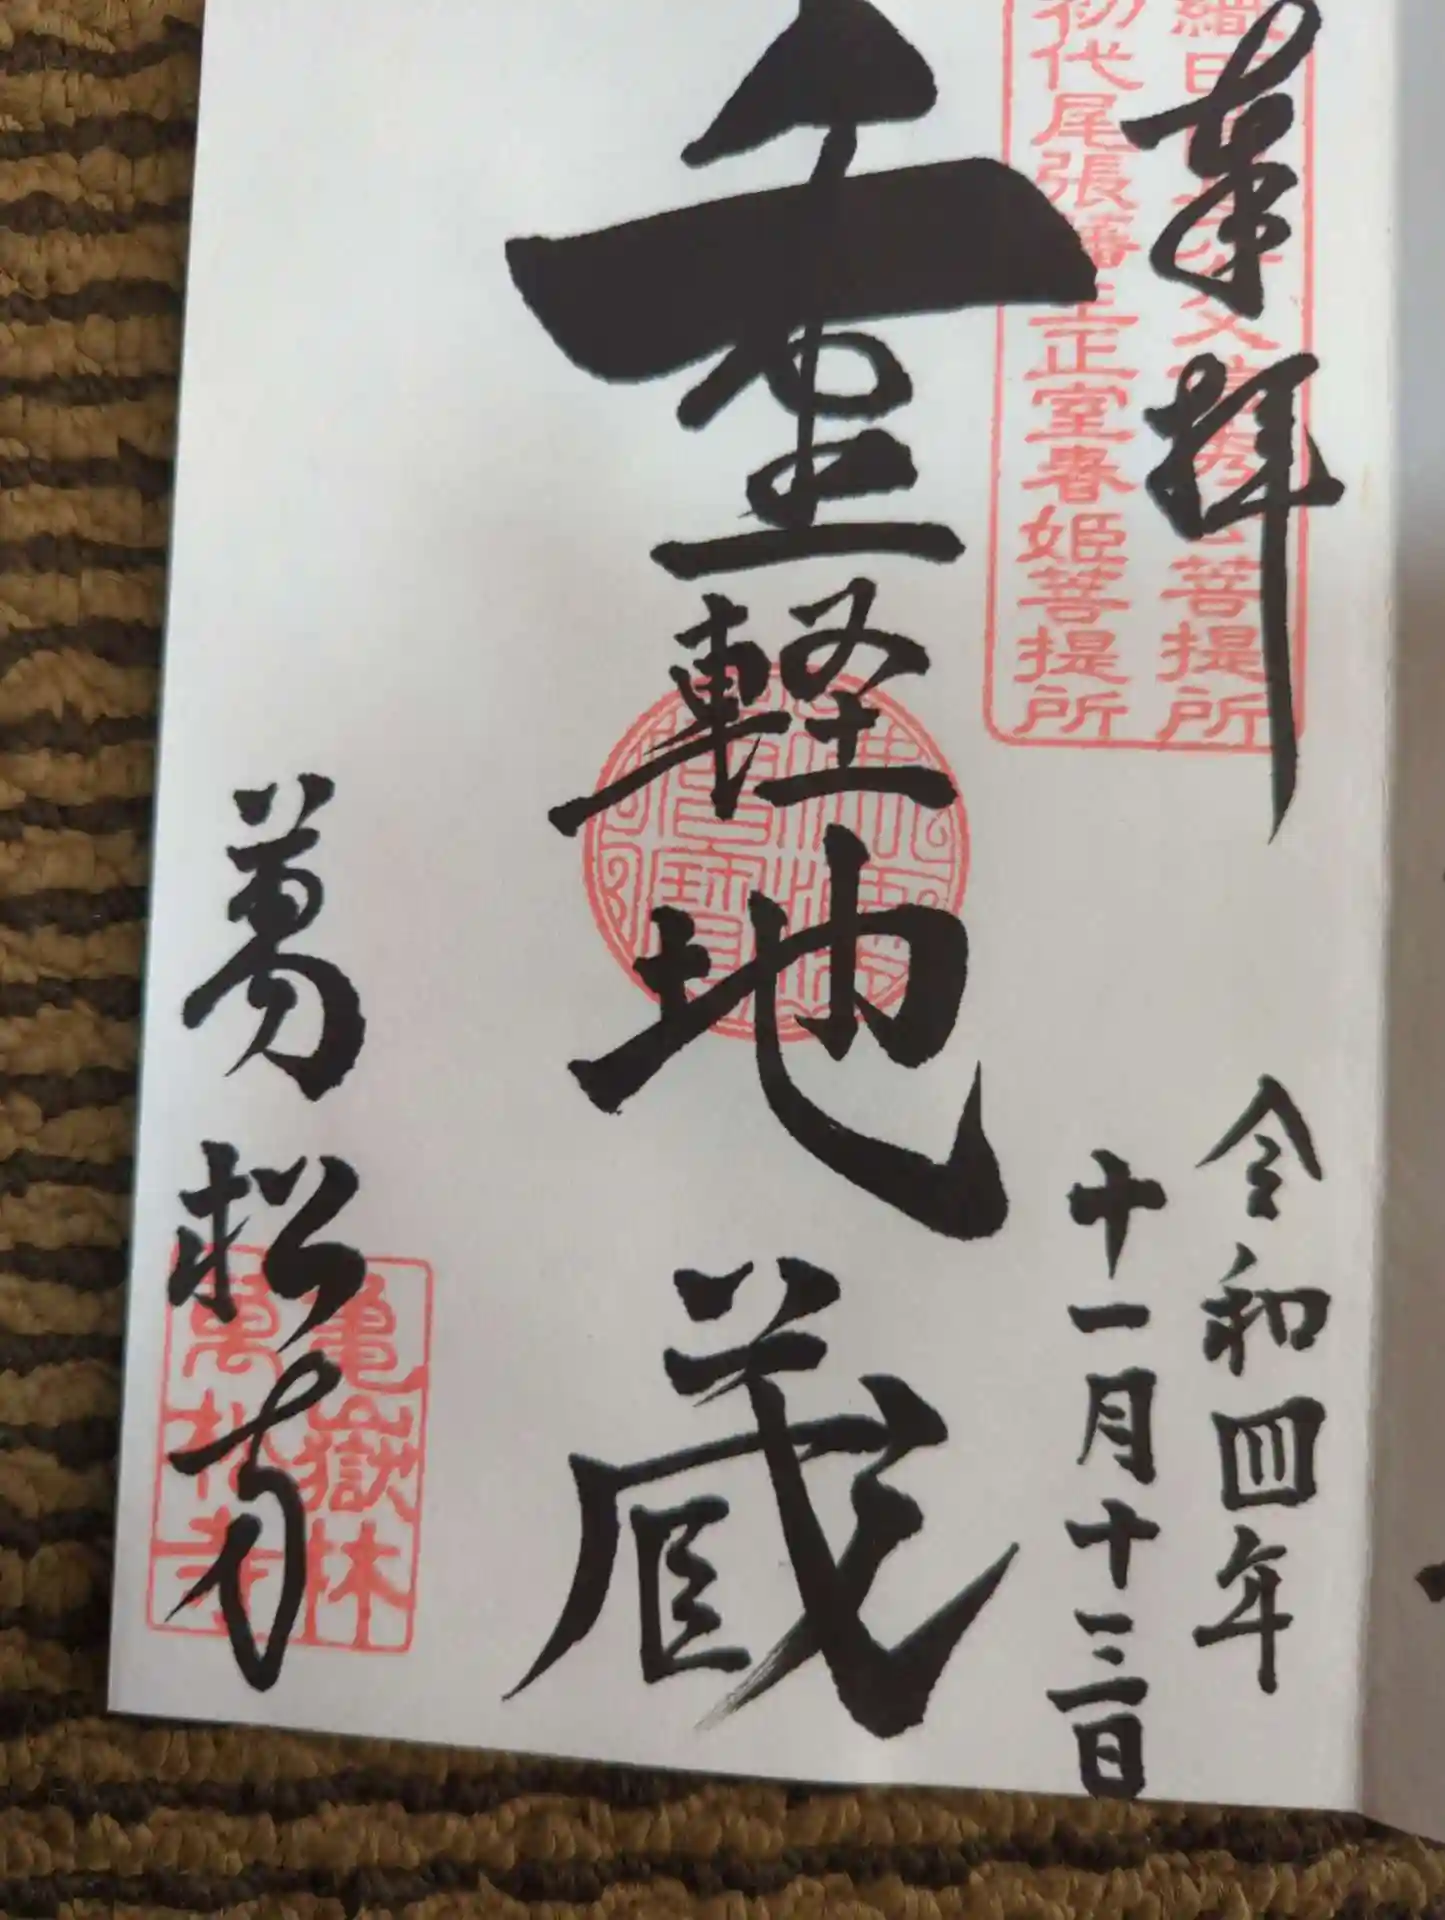 奉拝
織田信長公父信秀公菩提所
初代尾張藩主正室春姫菩提所
令和四年
十一月十三日
重軽地蔵
萬松寺
亀嶽林
萬松寺